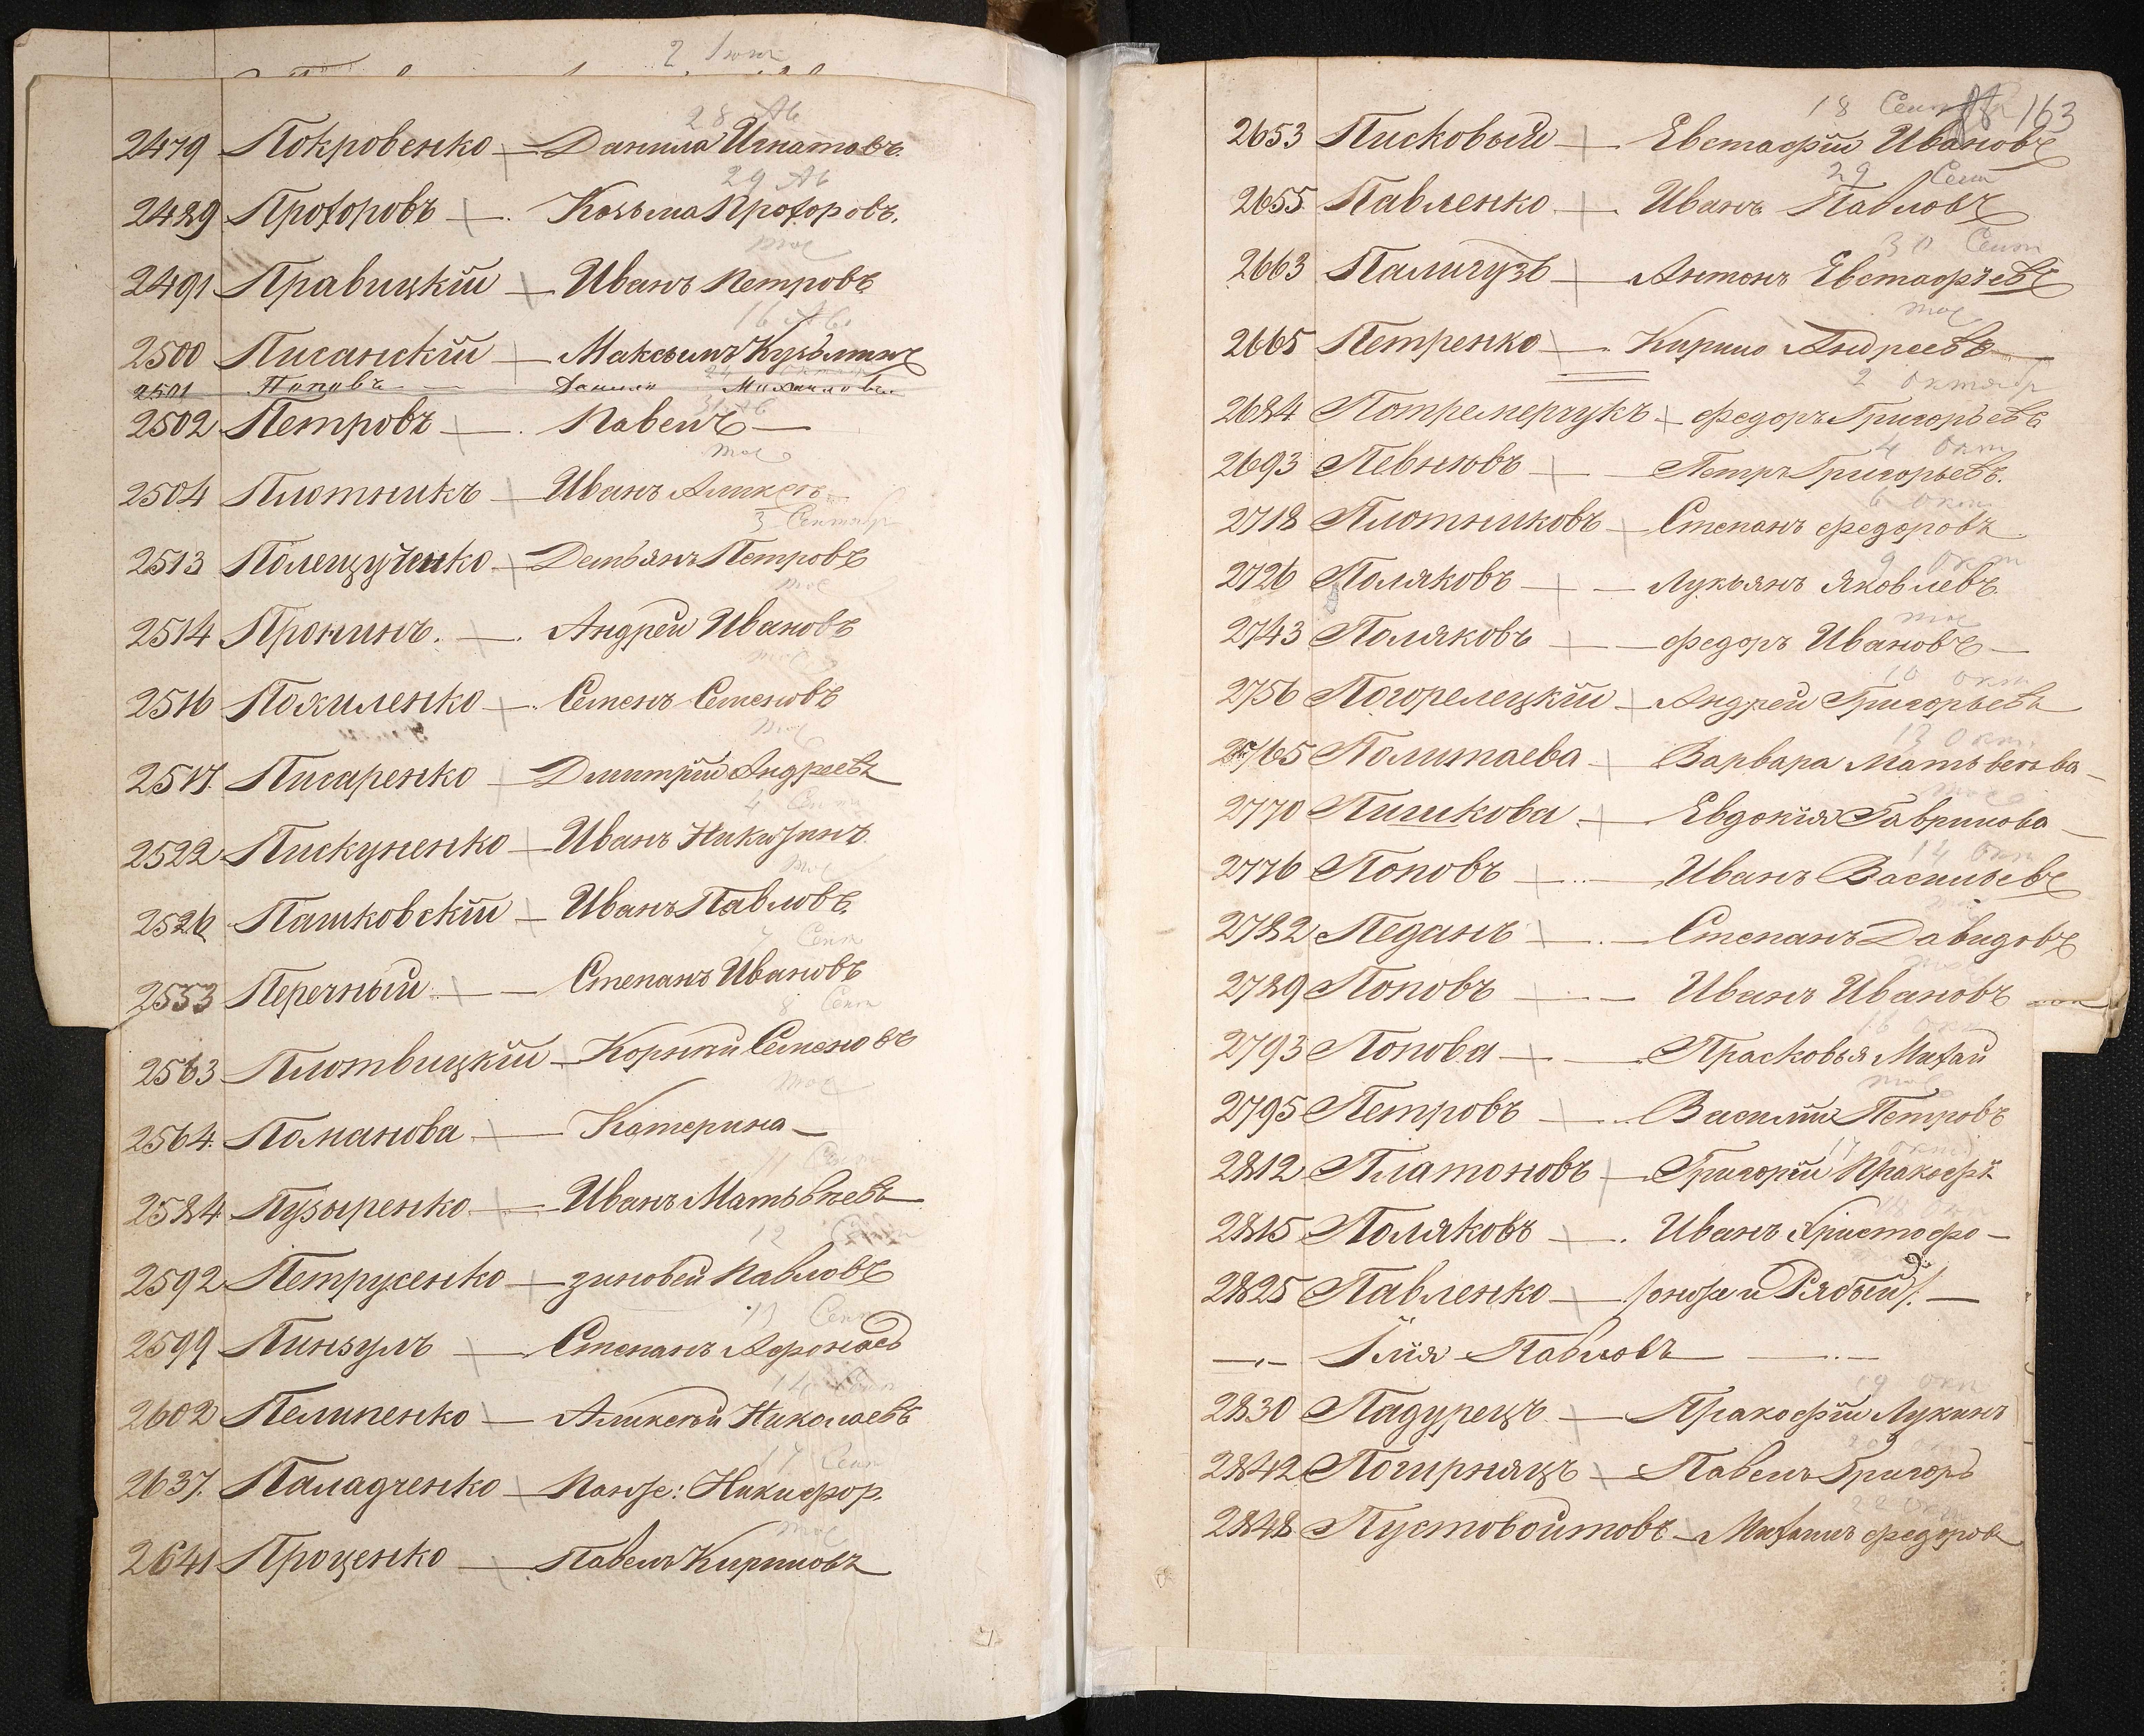 2 Июн
28 Ав
2479 Покровенко — Данила Игнатовъ.
29 Ав
2489 Прохоровъ — Козьма Прохоровъ.
тог
2491 Правицкій — Иванъ Петровъ
16 Ав
2500 Писанскій — Максымъ Кузьминъ
24 октяб
2501 Поповъ — Данило Михайловъ
31 Ав
2502 Петровъ — Павелъ —
тог
2504 Плотникъ Иванъ Алексе
3 Сентябр
2513 Полещученко — Демьянъ Петровъ
тог
2514 Пронинъ. — Андрей Ивановъ
тог
2516 Похиленко — Семенъ Семеновъ
тог
2517. Писаренко — Дмитрій Андреевъ
4 Сент
2522 Пискуненко — Иванъ Никитинъ.
тог
2526 Пашковскій — Иванъ Павловъ.
7 Сент
2553 Перечный — Степанъ Ивановъ
8 Сент
2563 Плотвицкій — Корній Семеновъ
тог
2564. Поманова — Катерина —
11 Сент
2584 Пузыренко — Иванъ Матьвѣевъ
12 Сент
2592 Петрусенко — зиновей Павловъ
13 Сент
2599 Пинзулъ — Степанъ Афонась
14 Сент
2602 Пелипенко — Аликсѣй Николаевъ
17 Сент
2637. Паладченко — Панте: Никифор.
тог
2641 Проценко — Павелъ Кириловъ
18 Сент 163
2653 Писковый — Евстафій Ивановъ
29 Сент
2655 Павленко — Иванъ Павловъ
30 Сент
2663 Палигузъ — Антонъ Евстафьевъ
тог
2665 Петренко — Кирило Андреевъ —
2 октябр
2684 Потремерчукъ — федоръ Григорьевъ
4 Окт
2693 Певневъ — Петръ Григорьевъ.
6 Окт
2718 Плотниковъ — Степанъ федоровъ.
9 Окт
2726 Поляковъ — Лукьянъ Яковлевъ.
тог
2743 Поляковъ — федоръ Ивановъ —
10 окт
2756 Погорелецкій — Андрей Григорьевъ
13 Окт.
2765 Политаева — Варвара Матьвеева —
тог
2770 Пишкова — Евдокія Гаврилова —
14 Окт
2776 Поповъ — Иванъ Васильевъ
2782 Педанъ — Степанъ Давидовъ
тог
2789 Поповъ — Иванъ Ивановъ
16 Окт
2793 Попова — Прасковья Михай
тог
2795 Петровъ — Василій Петровъ
17 октя
2812 Платоновъ — Григорій Пракофь
18 Окт
2815 Поляковъ — Иванъ Христофо —
2825 Павленко — /онже и Рябый/. —
—„— Илія Павловъ —
19 окт
2830 Падурецъ — Пракофій Лукинъ
2842 Погирняцъ — Павелъ Григорь
22 Окт
2848 Пустовойтовъ — Михаилъ федоров